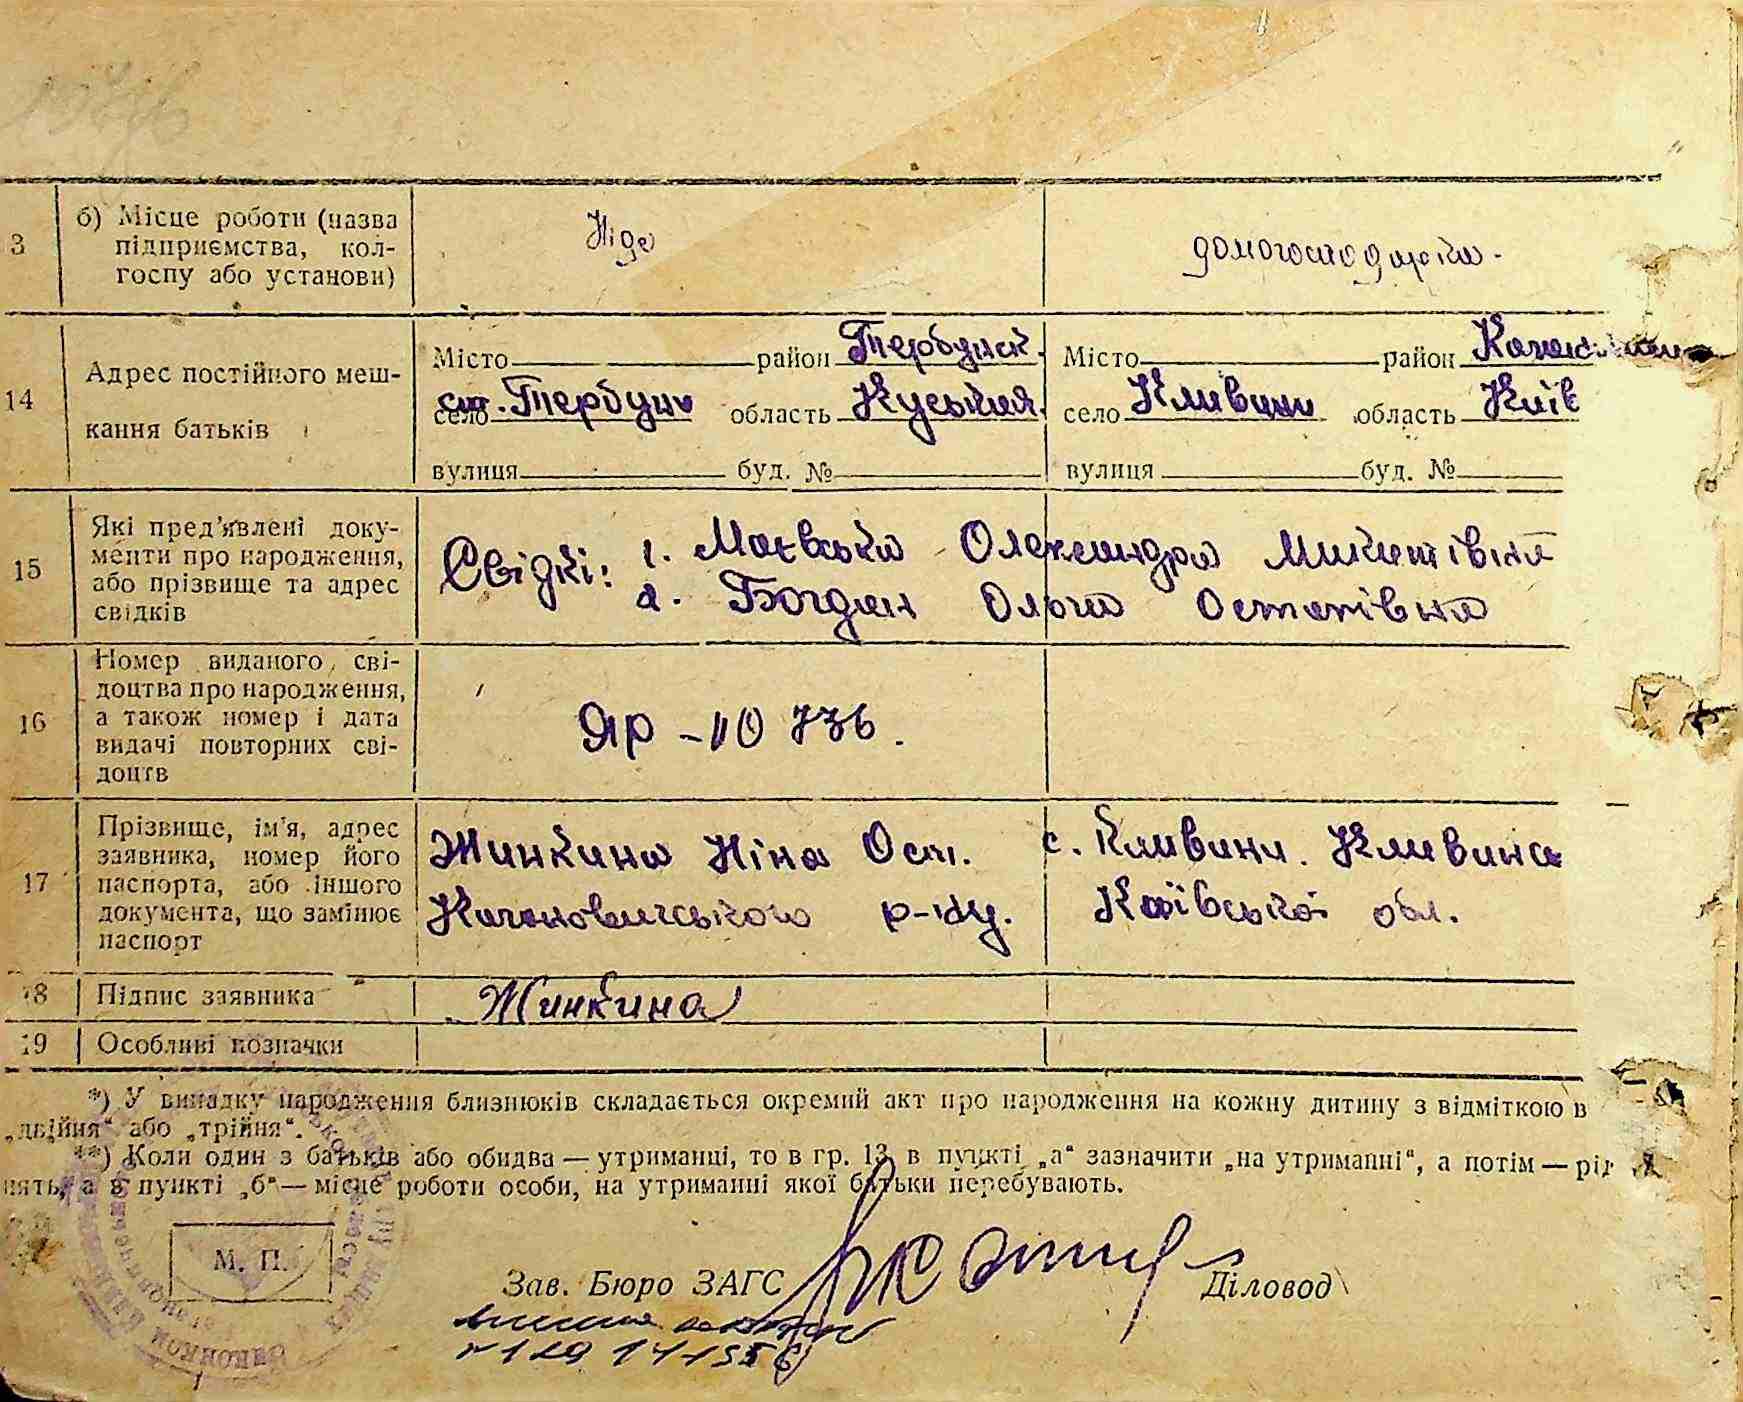 3
б) Місце роботи (назва
підприємства, кол-
госпу або установи)
Ніде
домогосподарка.
14
Адрес постійного меш-
кання батьків
Місто район Тербунск.
ст. село Тербуни область Курська
вулиця буд. №
Місто район
село Кливини область Київ
вулиця буд. №
15
Які пред'явлені доку-
менти про народження,
або прізвище та адрес
свідків
Свідкі: 1. Маєвська Олександра Микитівна
2. Богдан Ольга Остапівна
16
Номер виданого сві-
доцтва про народження,
а також номер і дата
видачі повторних сві-
доцтв
ЯР - 110 736.
17
Прізвище, ім'я, адрес
заявника, номер його
паспорта, або іншого
документа, що замінює
паспорт
Жинкина Ніна Ост. с. Кливини. Кливинс
Кагановичського р-ну. Київської обл.
18
Підпис заявника
Жинкина
19
Особливі позначки
*) У випадку народження близнюків складається окремий акт про народження на кожну дитину з відміткою в
„двійня“ або „трійня“.
**) Коли один з батьків або обидва — утриманці, то в гр. 13 в пункті „а“ зазначити „на утриманні“, а потім — рід
нять, а в пункті „б“ — місце роботи особи, на утриманні якої батьки перебувають.
М. П.
Зав. Бюро ЗАГС
Діловод